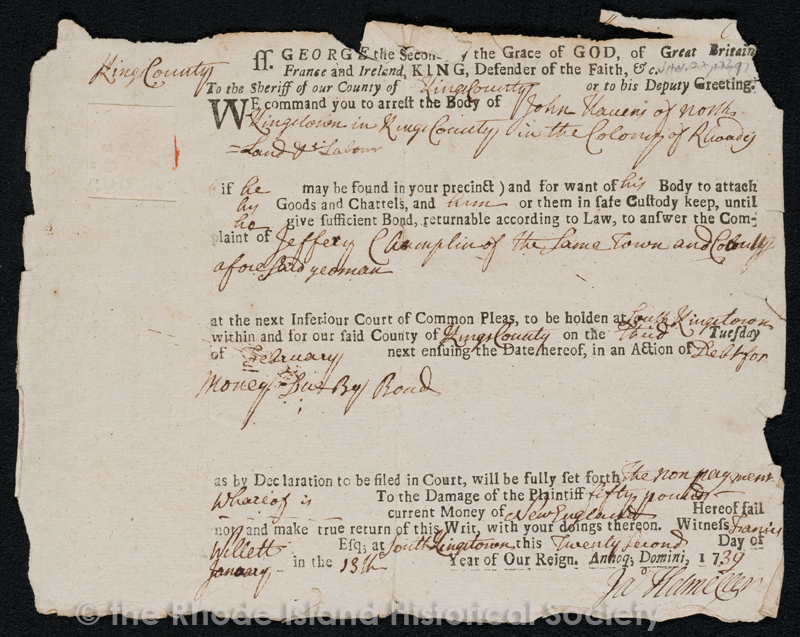 King County
ſſ. GEORGE the Second by the Grace of GOD, of Great Britain
France and Ireland, KING, Defender of the Faith, & c.
To the Sheriff of our County of Kings County or to his Deputy Greeting.
WE command you to arreſt the Body of John Havens of north
Kingstown in Kings County in the Colony of Rhoad Is
=Land Labour
if he may be found in your precinct) and for want of his Body to attach
hy Goods and Chattels, and him or them in ſafe Cuſtody keep, until
he give ſufficient Bond, returnable according to Law, to anſwer the Com-
plaint of Jeffery Champlin of the Same Town and County
afore Said yeoman
at the next Inferiour Court of Common Pleas, to be holden at South Kingstown
within and for our ſaid County of Kings County on the third Tueſday
of February next enſuing the Date hereof, in an Action of Debt for
Money Due By Bond
as by Declaration to be filed in Court, will be fully ſet forth The non payment
Whareof is To the Damage of the Plaintiff fifty pounds
current Money of New England Hereof fail
not, and make true return of this Writ, with your doings thereon. Witneſs Francis
Willett Eſq; at South Kingstown this Twenty Second Day of
January in the 13th Year of Our Reign. Annoq; Domini, 1739
Ja Helme Cler
© the Rhode Island Historical Society